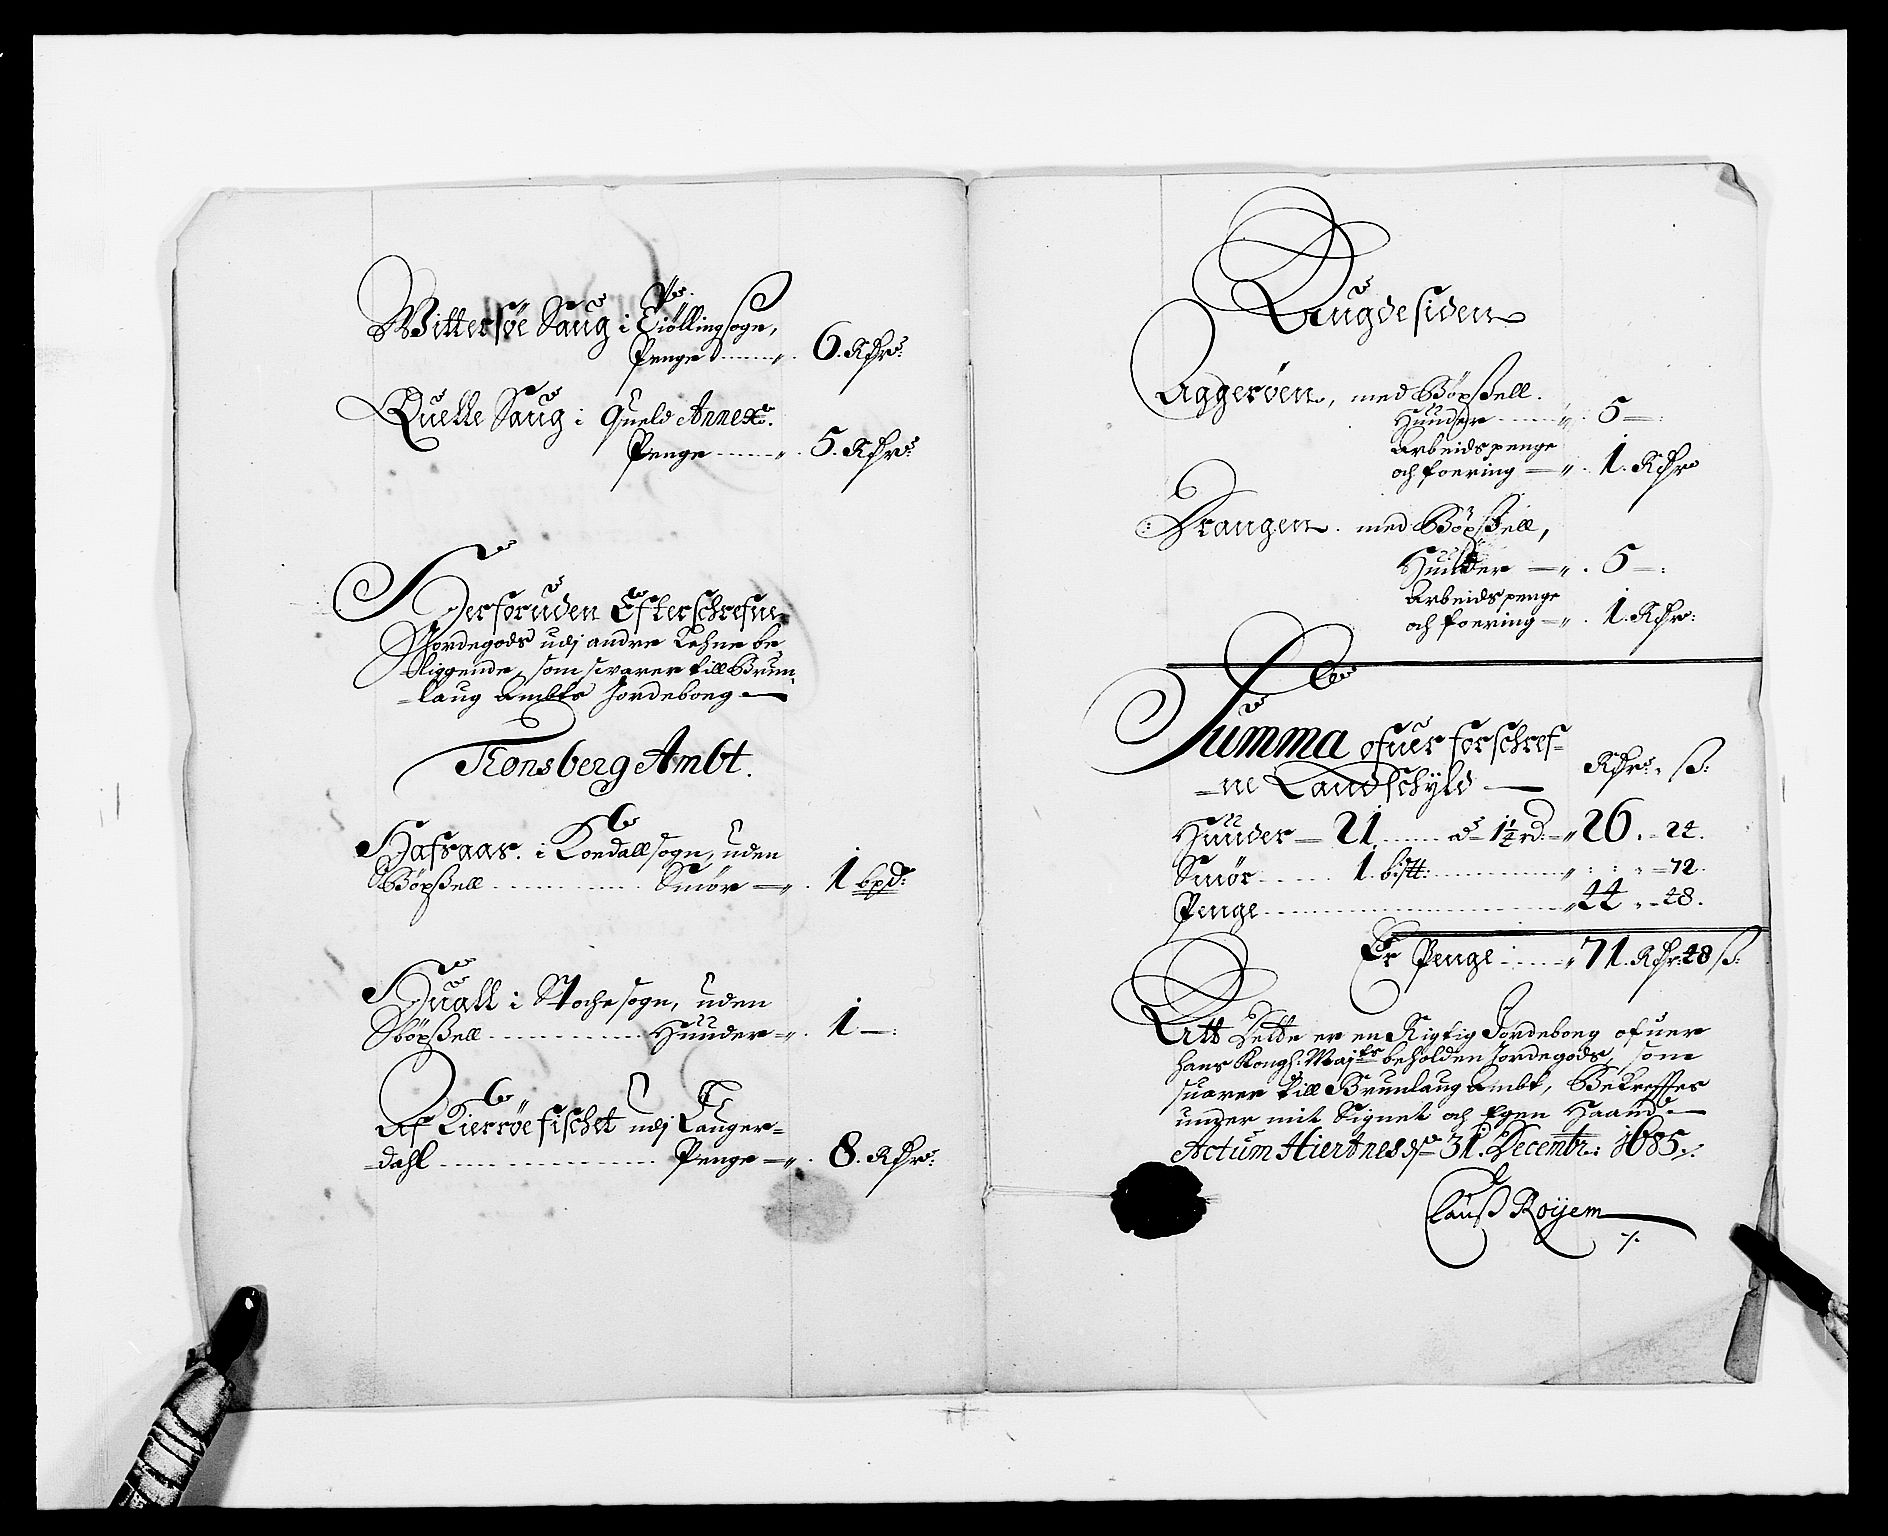 Wittersøe Saug i Tiøllingsogn,
Penge ........ „. 6. Rdr:
Quelle Saug i Queld Annex.
Penge ........ „. 5. Rdr:
Derforuden Efterschrefne
Jordegods udj andre Lehne be
liggende, som svarer till Brun-
-laug Ambts Jordeboeg —
Tønsberg Ambt.
Hafsaas. i Koedallsogn, uden
Böxßell .............. Smör —„. 1 bpd:
Huall i Stochesogn, uden
Böxßell .............. Huuder —„. 1 —:
Af Kierrøefischet udj Langer-
-dahl .................. Penge —„. 8. Rdr:
Laugdesiden
Aggerøen, med Böxßell.
Huuder ........ „. 5 —:
Arbeidspenge
och foering —„. 1. Rdr
Krangen. med Böxßell,
Huuder —„. 5 —:
Arbeidspenge
och foering —„. 1. Rdr:
Summa ofuer forschref-
-ne Landschyld — Rdr: „ ß:
Huuder — 21 ...... a 1¼ rd: —„ 26. — 24.
Smör ...... 1. bißtt: ............ „ : : „ — 72.
Penge .............................. „ 44 „ — 48.
Er Penge ...... „ 71. Rdr: 48 ß:
Att Dette er en Rigtig Jordeboeg ofuer
hans Kongl: Majts beholden Jordegods, som
suarer till Brunlaug Ambt, Bekreffter
under mit Signet och Egen Haand —
Actum Hiertnes dn 31. Decembr: 1685 ./.
Clauß Röyem
./.